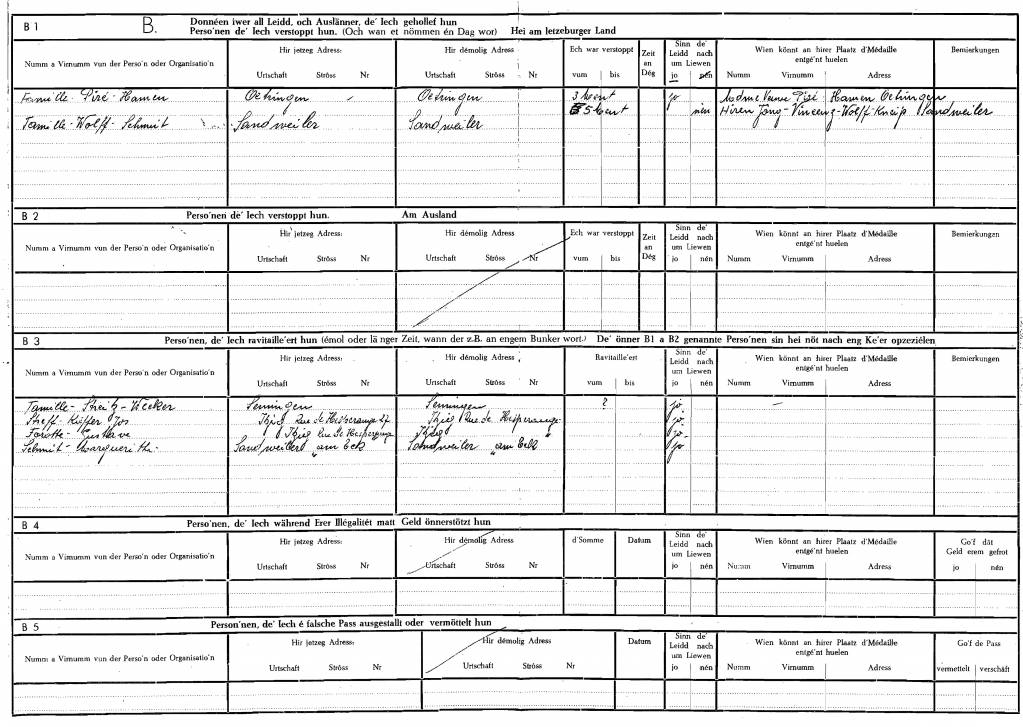 B 1 B. Donnéen iwer all Leidd, och Auslänner, de' Iech gehollef hun
Perso'nen de' Iech verstoppt hun. (Och wan et nömmen én Dag wor) Hei am letzeburger Land
Numm a Virnumm vun der Perso'n oder Organisatio'n
Hir jetzeg Adress: Hir démolig Adress Ech war verstoppt Zeit an Dég Sinn de' Leidd nach um Liewen Wien könnt an hirer Plaatz d'Médaille entgé'nt huelen Bemierkungen
Urtschaft Ströss Nr Urtschaft Ströss Nr vum bis jo nén Numm Virnumm Adress
Famille - Piré - Hamen Oetringen Oetringen 3 jo Piré Hamen Oetringen
Famille - Wolff - Schmit Sandweiler Sandweiler 5 nén Wolff Sandweiler
B 2 Perso'nen de' Iech verstoppt hun. Am Ausland
Numm a Virnumm vun der Perso'n oder Organisatio'n
Hir jetzeg Adress: Hir démolig Adress Ech war verstoppt Zeit an Dég Sinn de' Leidd nach um Liewen Wien könnt an hirer Plaatz d'Médaille entgé'nt huelen Bemierkungen
Urtschaft Ströss Nr Urtschaft Ströss Nr vum bis jo nén Numm Virnumm Adress
B 3 Perso'nen, de' Iech ravitaille'ert hun (émol oder länger Zeit, wann der z.B. an engem Bunker wort.) De' önner B1 a B2 genannte Perso'nen sin hei nöt nach eng Ke'er opzeziélen
Numm a Virnumm vun der Perso'n oder Organisatio'n
Hir jetzeg Adress: Hir démolig Adress Ravitaille'ert Sinn de' Leidd nach um Liewen Wien könnt an hirer Plaatz d'Médaille entgé'nt huelen Bemierkungen
Urtschaft Ströss Nr Urtschaft Ströss Nr vum bis jo nén Numm Virnumm Adress
Famille - Weeker ? jo
Steff - Kieffer Jos Rue de Hesperange 27 Rue de Hesperange jo
Rue de Hesperange " jo
Schmit - Sandweiler "am Eck Sandweiler "am Eck jo
B 4 Perso'nen, de' Iech während Erer Illégalitét matt Geld önnerstötzt hun
Numm a Virnumm vun der Perso'n oder Organisatio'n
Hir jetzeg Adress: Hir démolig Adress d'Somme Datum Sinn de' Leidd nach um Liewen Wien könnt an hirer Plaatz d'Médaille entgé'nt huelen Go'f dât Geld erem gefrot
Urtschaft Ströss Nr Urtschaft Ströss Nr jo nén Numm Virnumm Adress jo nén
B 5 Person'nen, de' Iech é falsche Pass ausgestallt oder vermöttelt hun
Numm a Virnumm vun der Perso'n oder Organisatio'n
Hir jetzeg Adress: Hir démolig Adress Datum Sinn de' Leidd nach um Liewen Wien könnt an hirer Plaatz d'Médaille entgé'nt huelen Go'f de Pass
Urtschaft Ströss Nr Urtschaft Ströss Nr jo nén Numm Virnumm Adress vermettelt verschâft